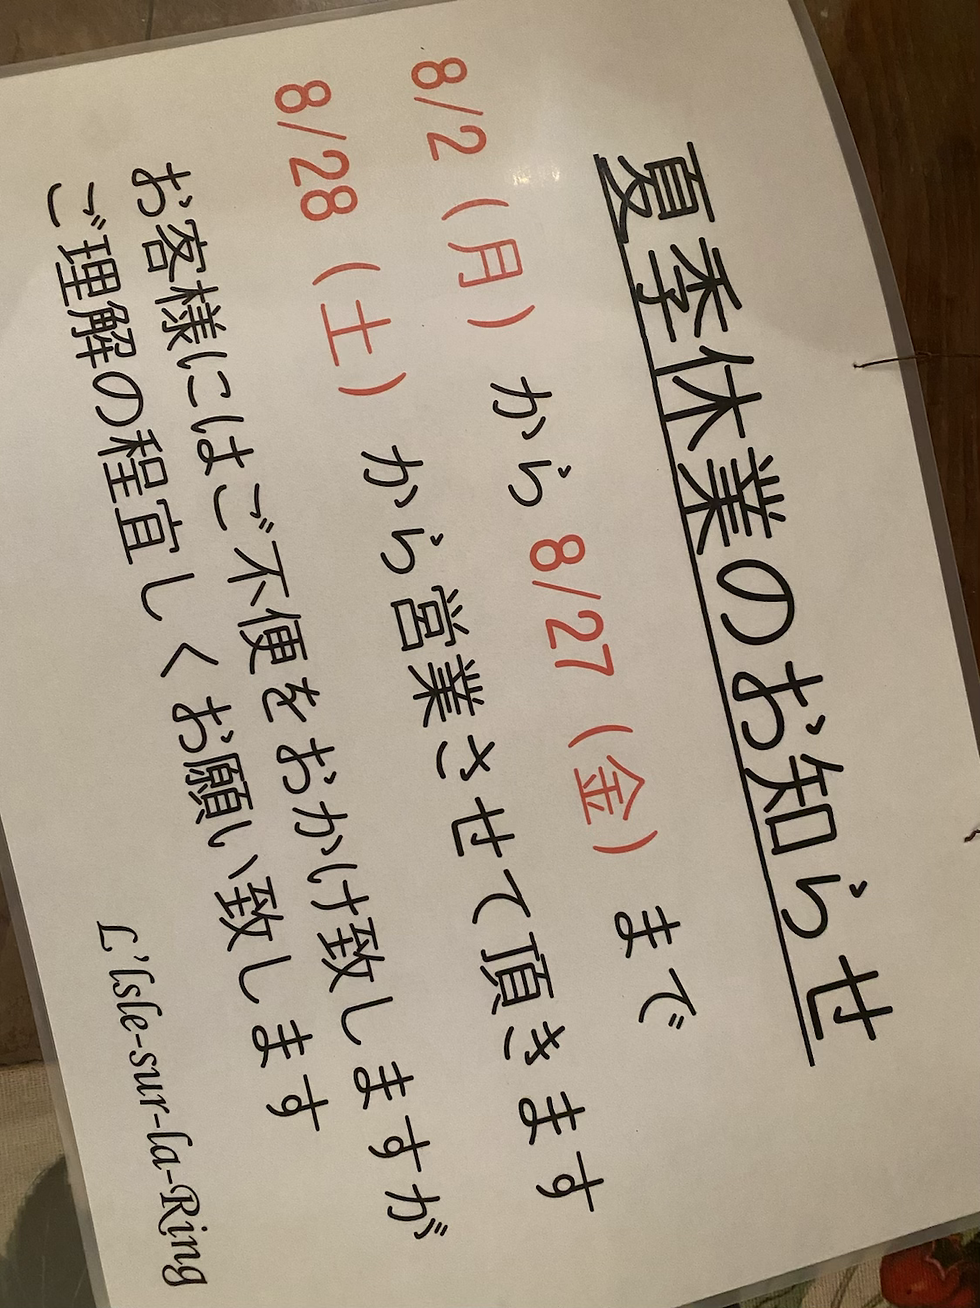 夏季休業のお知らせ
8/2（月）から 8/27（金）まで
8/28（土）から営業させて頂きます
お客様にはご不便をおかけ致しますが
ご理解の程宜しくお願い致します
L'Isle-sur-la-Ring